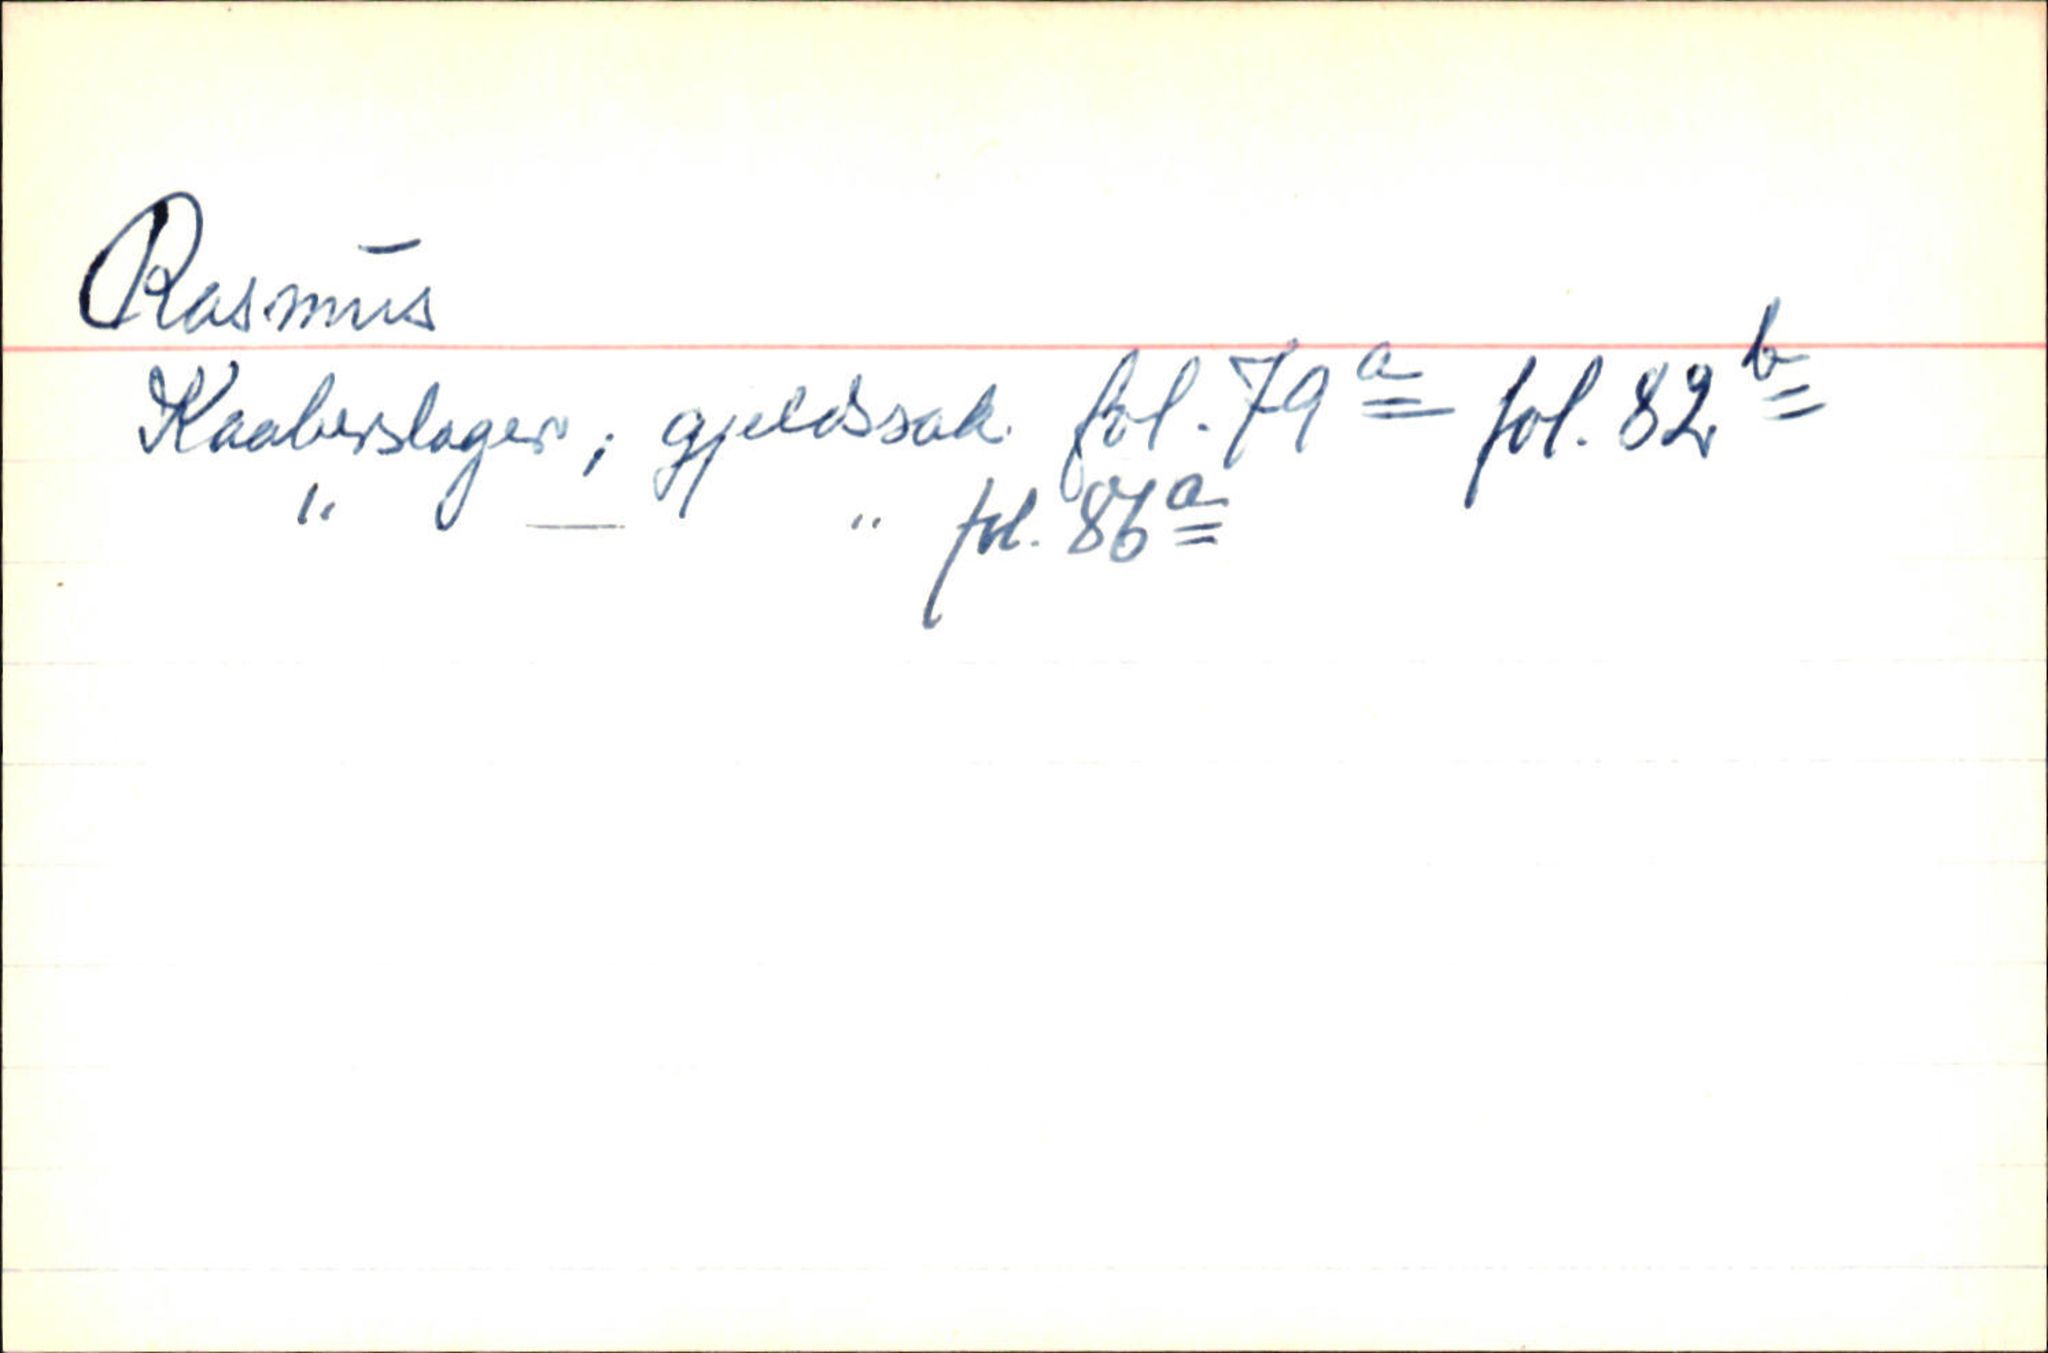 Rasmus
Kaaberslager, gjeldssak. fol. 79a fol. 82b
" — " fol. 86a